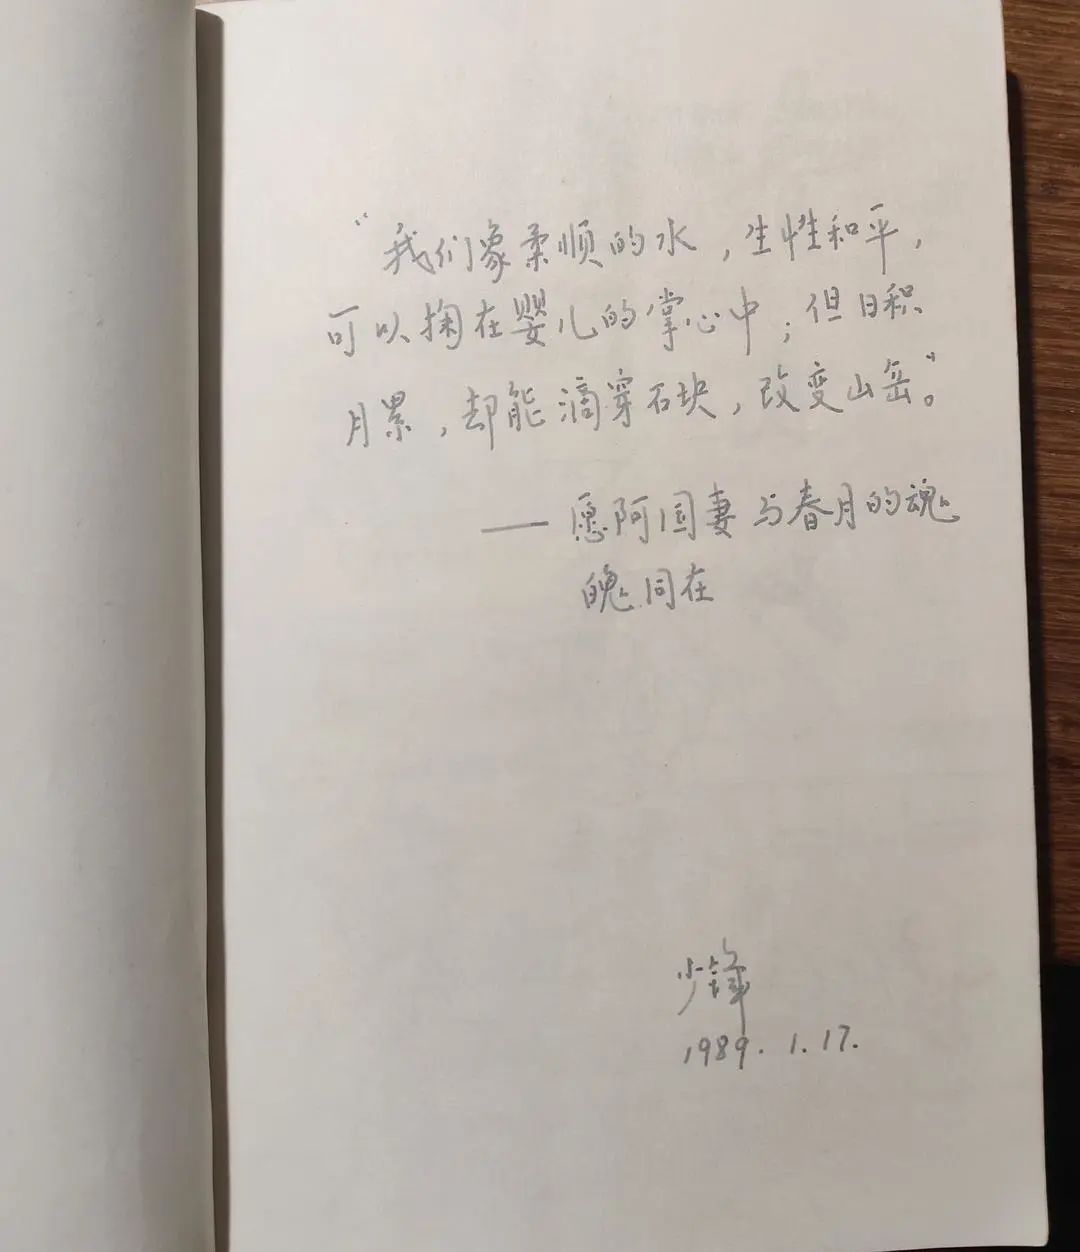 “我们象柔顺的水，生性和平，
可以掬在婴儿的掌心中；但日积
月累，却能滴穿石块，改变山岳。”
—— 愿阿国妻与春月的魂
魄同在
少锋
1989.1.17.